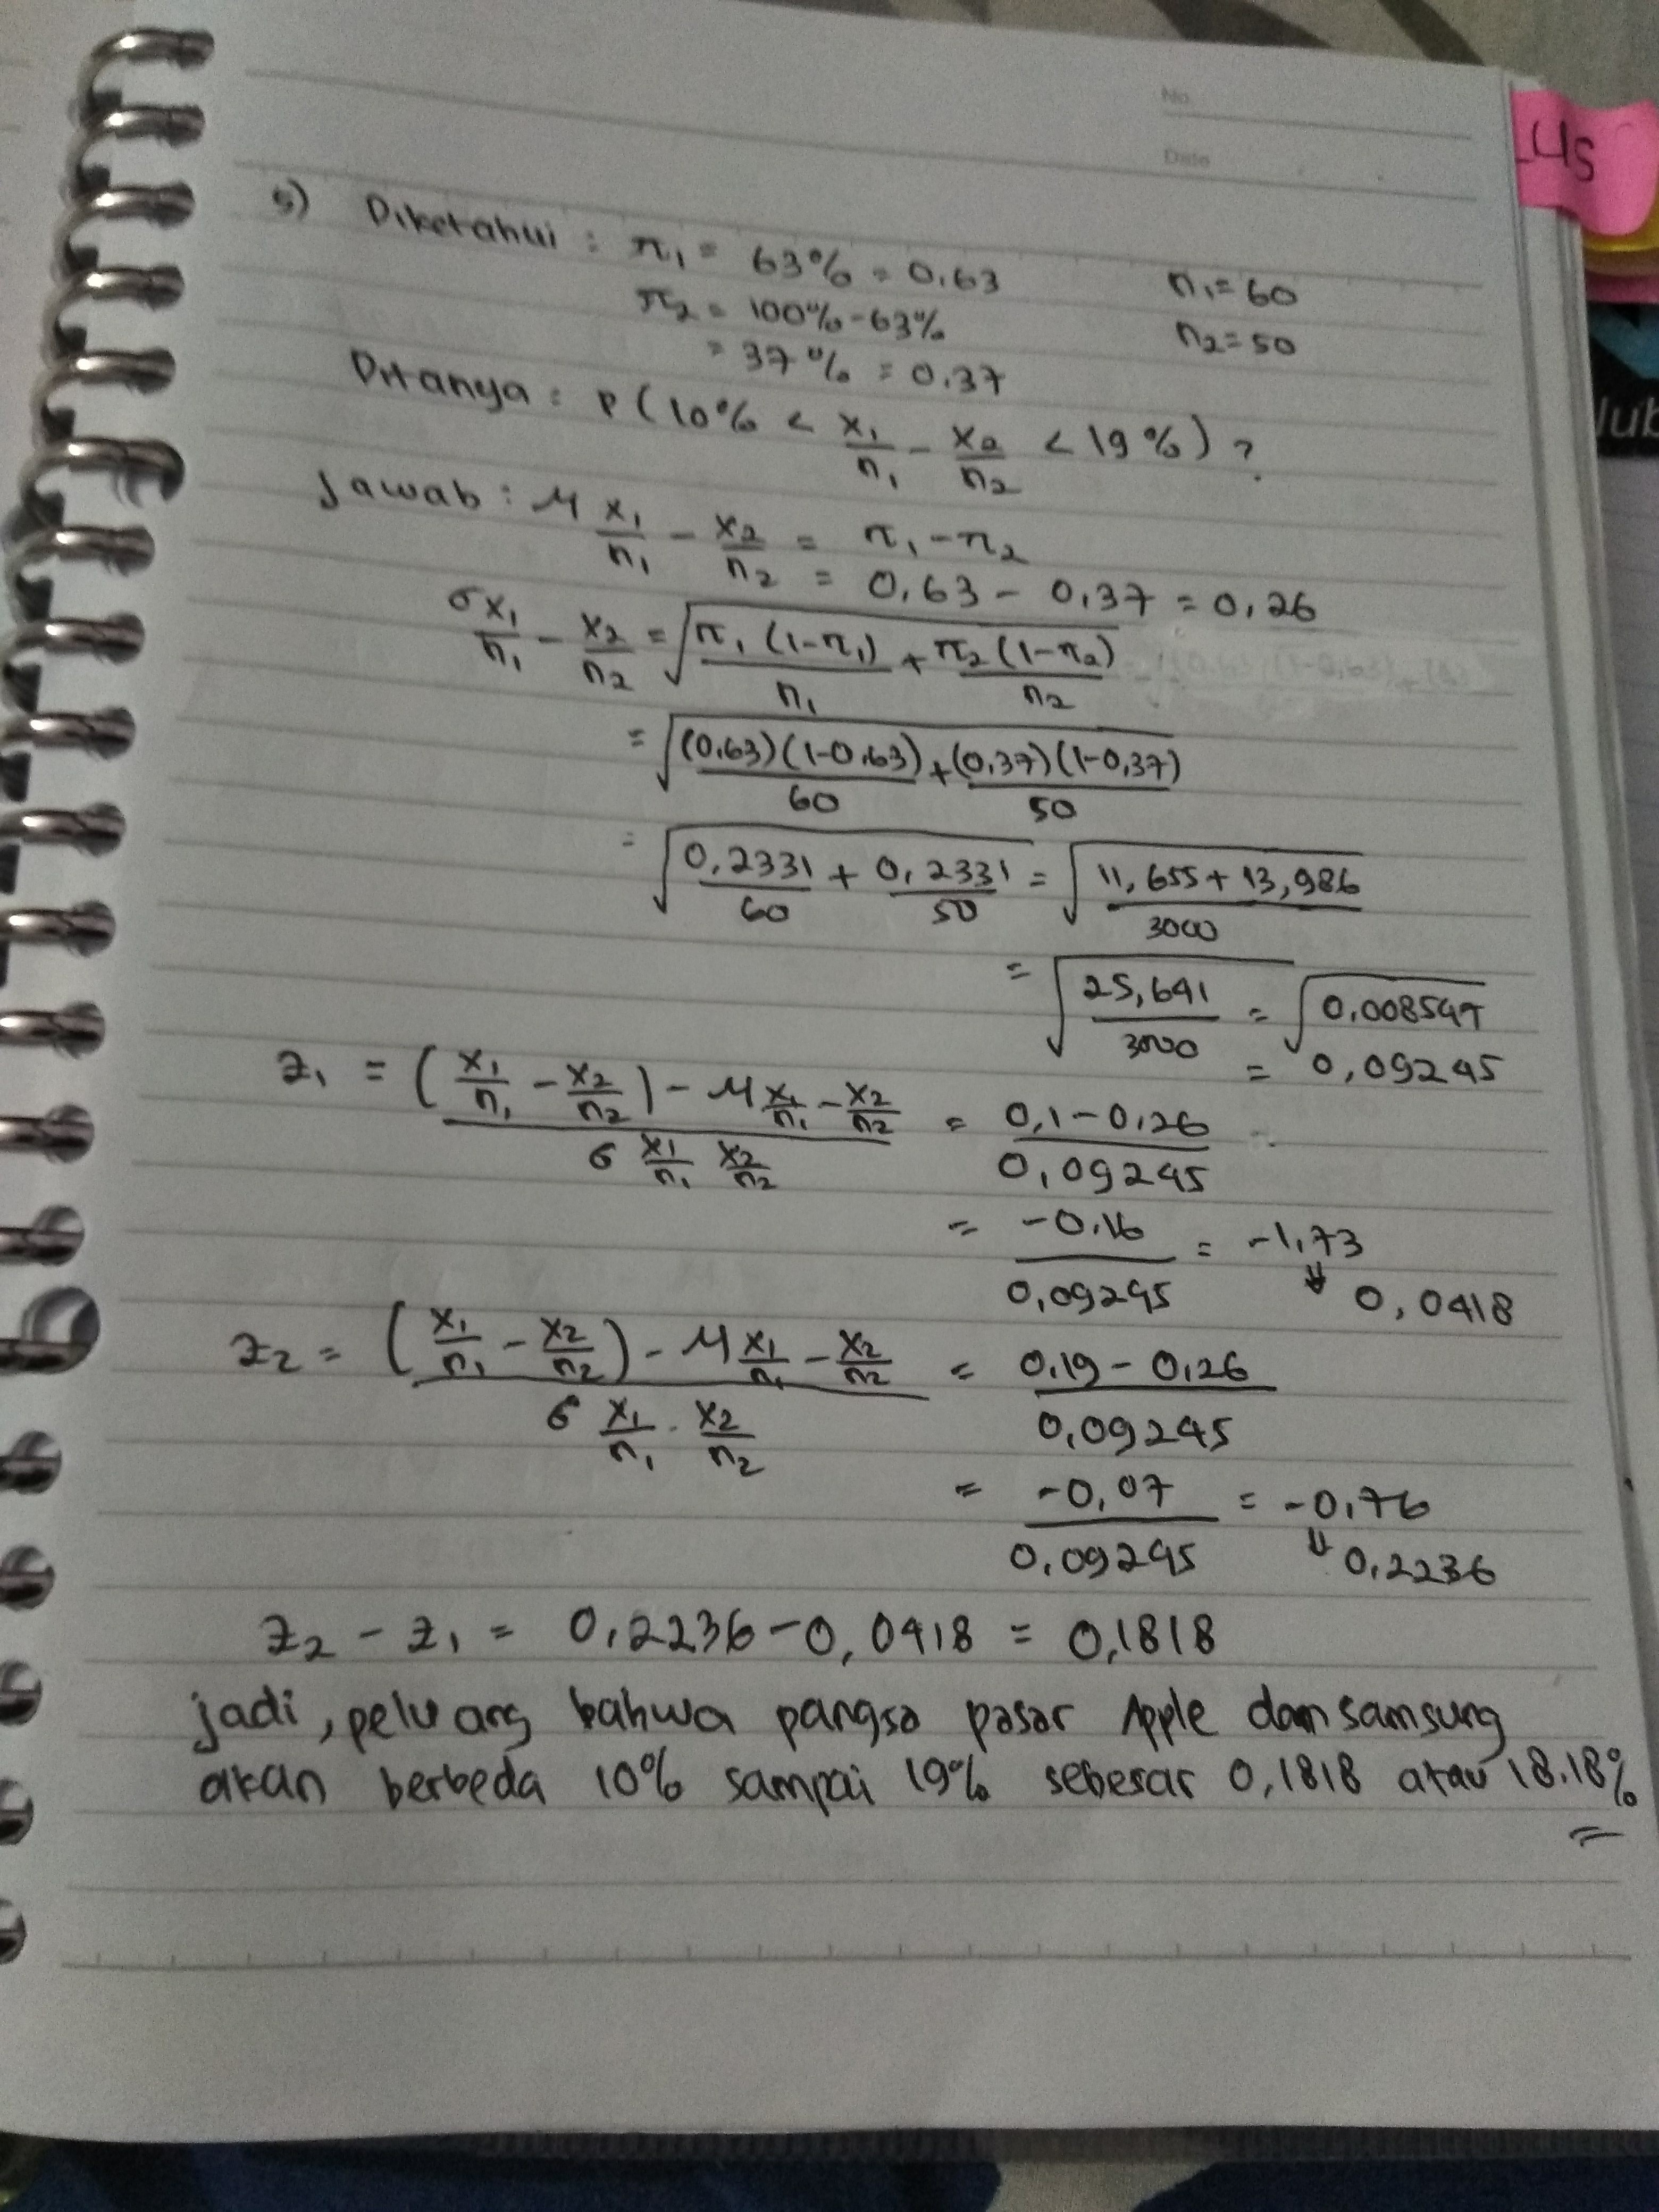 No
Date
US
lub
5) Diketahui : π₁ = 63% = 0,63 n₁ = 60
π₂ = 100% - 63% n₂ = 50
= 37% = 0,37
Ditanya : P (10% < x₁/n₁ - x₂/n₂ < 19%) ?
Jawab : μ x₁/n₁ - x₂/n₂ = π₁ - π₂
= 0,63 - 0,37 = 0,26
σ x₁/n₁ - x₂/n₂ = √(π₁ (1-π₁)/n₁ + π₂ (1-π₂)/n₂)
= √((0,63)(1-0,63)/60 + (0,37)(1-0,37)/50)
= √(0,2331/60 + 0,2331/50) = √((11,655 + 13,986)/3000)
= √(25,641/3000) = √0,008547
= 0,09245
z₁ = ((x₁/n₁ - x₂/n₂) - μ x₁/n₁ - x₂/n₂)/(σ x₁/n₁ x₂/n₂) = (0,1 - 0,26)/0,09245
= -0,16/0,09245 = -1,73
⇓ 0,0418
z₂ = ((x₁/n₁ - x₂/n₂) - μ x₁/n₁ - x₂/n₂)/(σ x₁/n₁ - x₂/n₂) = (0,19 - 0,26)/0,09245
= -0,07/0,09245 = -0,76
⇓ 0,2236
z₂ - z₁ = 0,2236 - 0,0418 = 0,1818
jadi, peluang bahwa pangsa pasar Apple dan samsung
akan berbeda 10% sampai 19% sebesar 0,1818 atau 18.18%